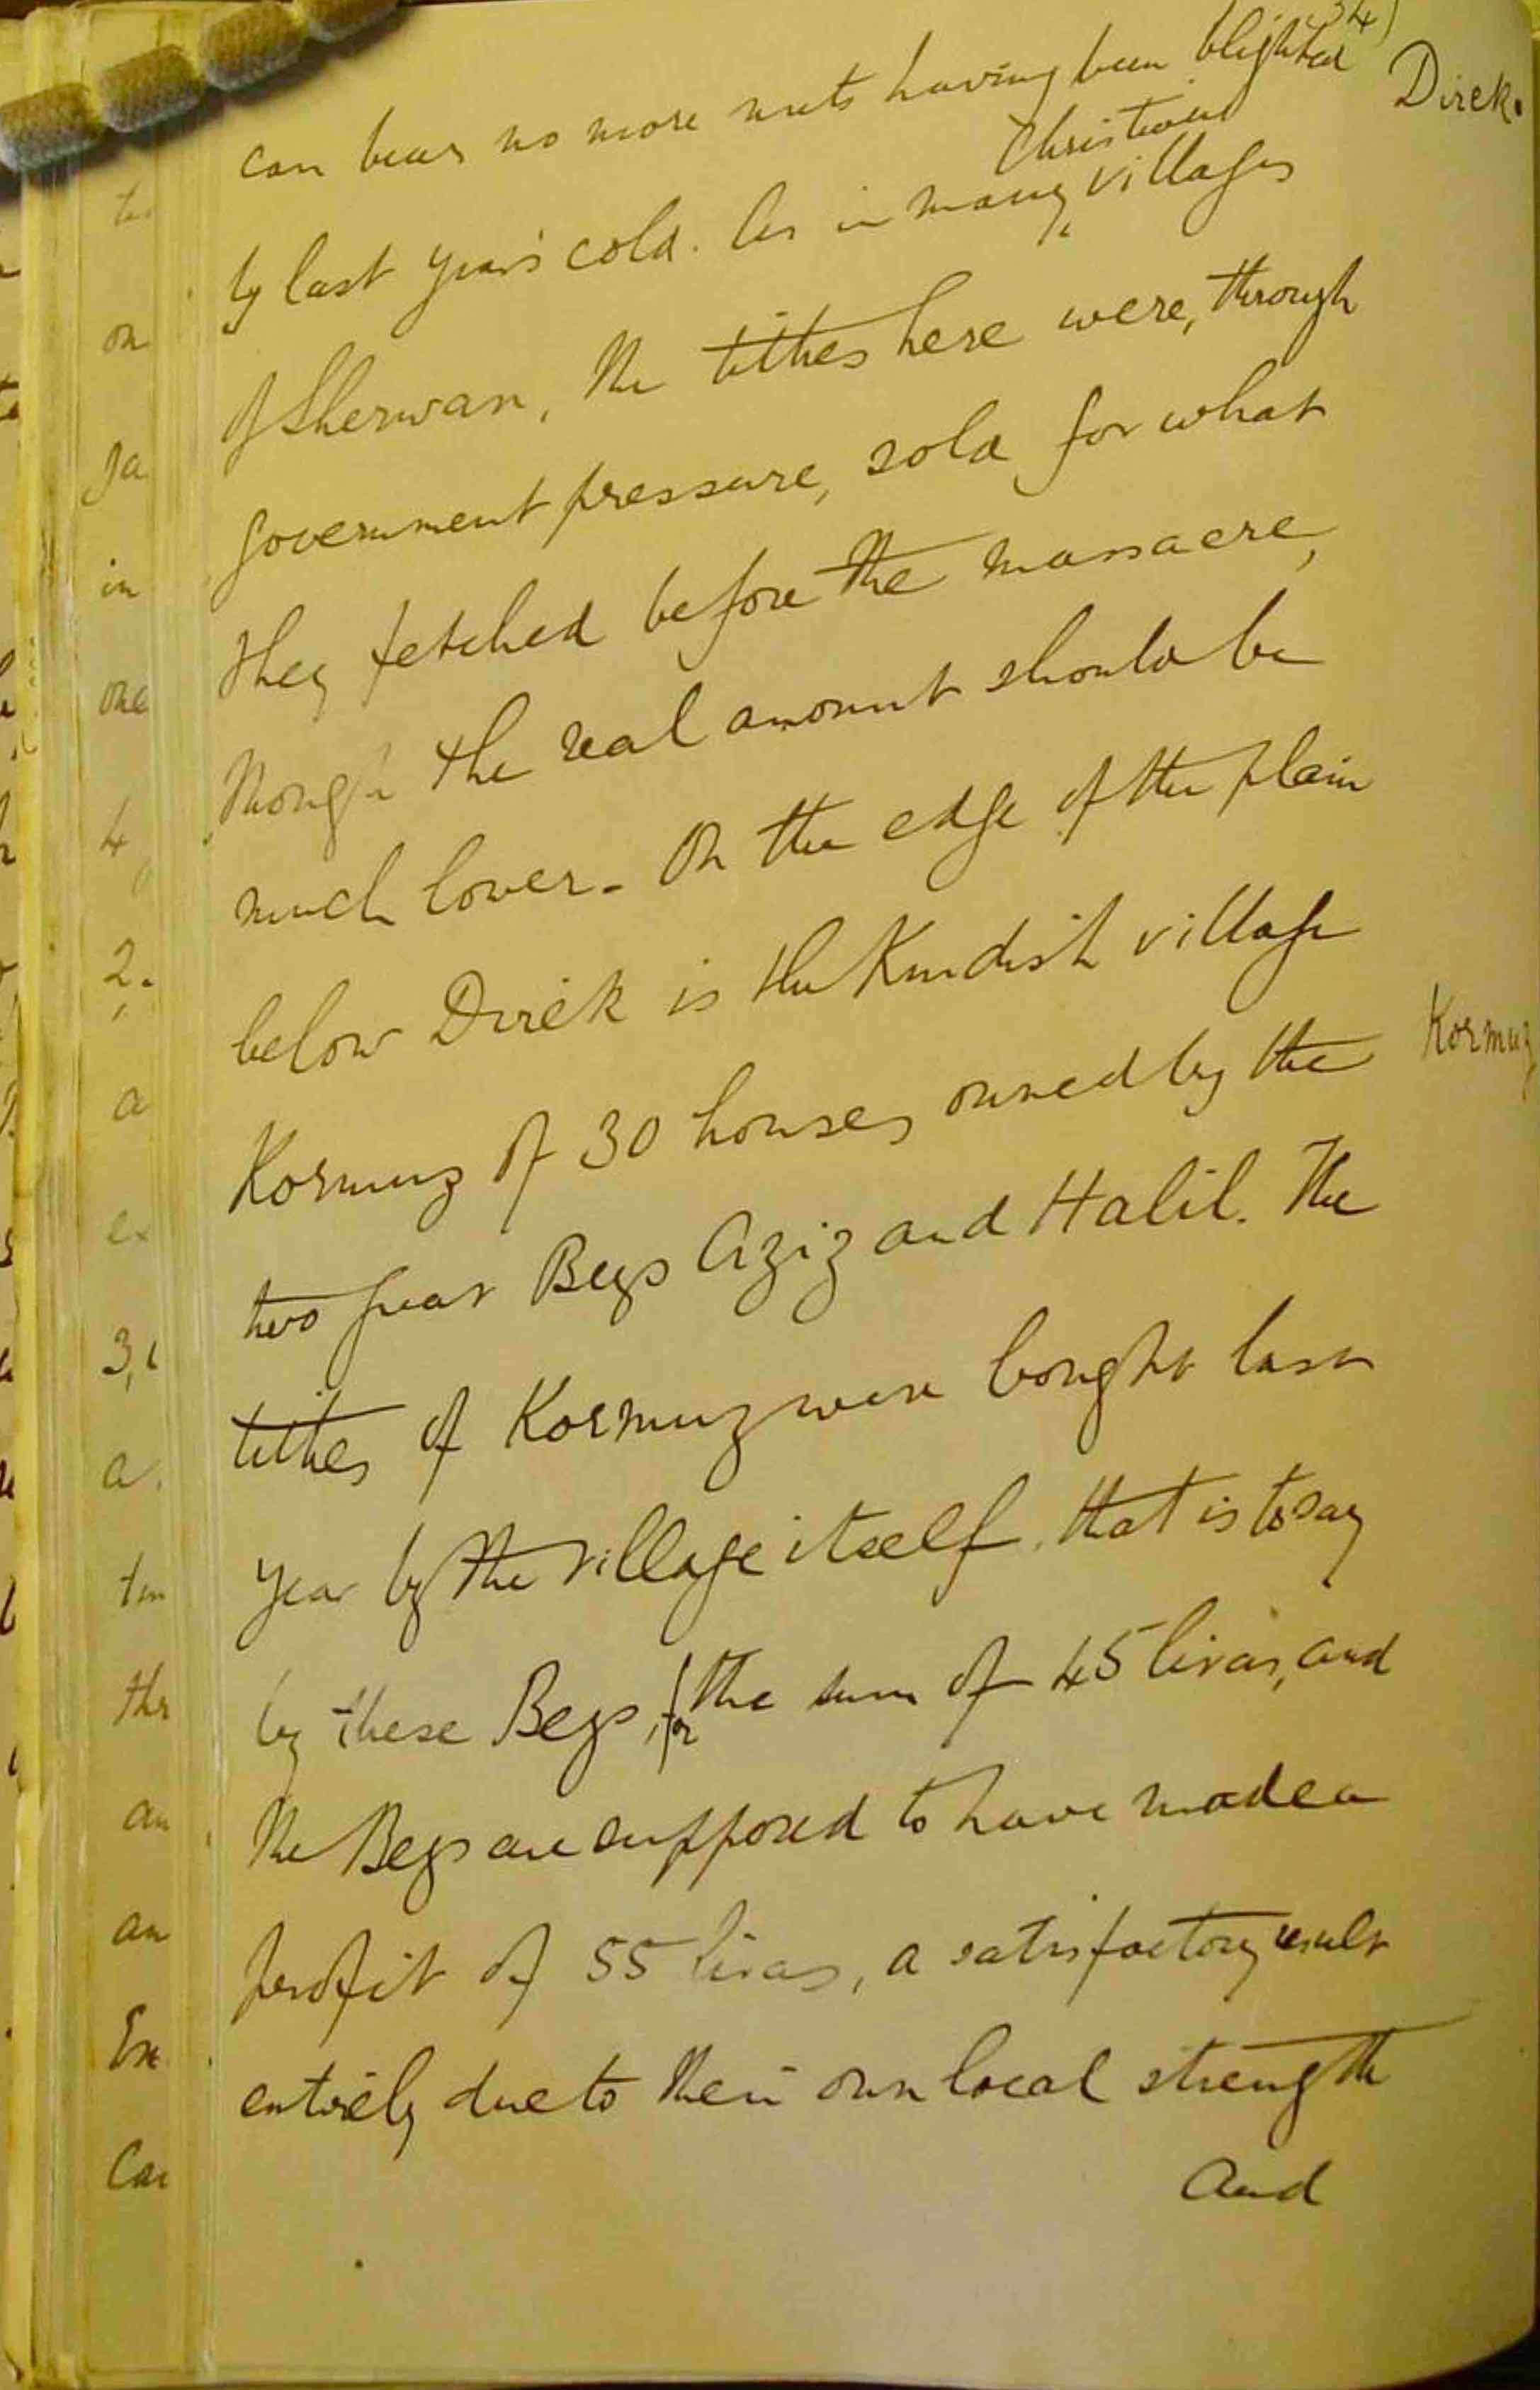 34)
can bear no more nuts having been blighted
Direk.
Christian
by last year's cold. As in many villages
of Sherwan, the tithes here were, through
government pressure, sold for what
they fetched before the massacre,
though the real amount should be
much lower. On the edge of the plain
below Direk is the Kurdish village
Kormuz of 30 houses owned by the
Kormuz
two great Begs Aziz and Halil. The
tithes of Kormuz were bought last
year by the village itself, that is to say
by these Begs, for the sum of 45 liras, and
the Begs are supposed to have made a
profit of 55 liras, a satisfactory result
entirely due to their own local strength
and
on
ja
in
one
4
2.
a
3,
a.
ten
the
an
an
Car